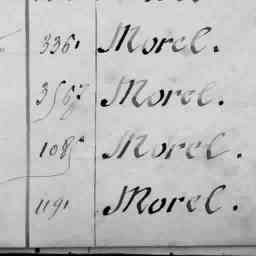 336. Morel.
3567 Morel.
108 Morel.
1191 Morel.